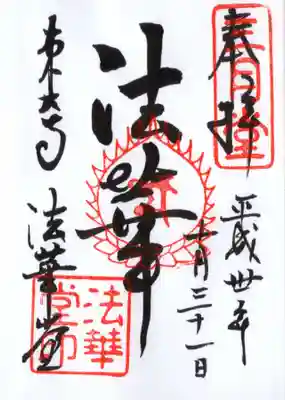 奉拝
三月堂
平成卅年
十月三十一日
法華
東大寺
法華堂
法華堂印